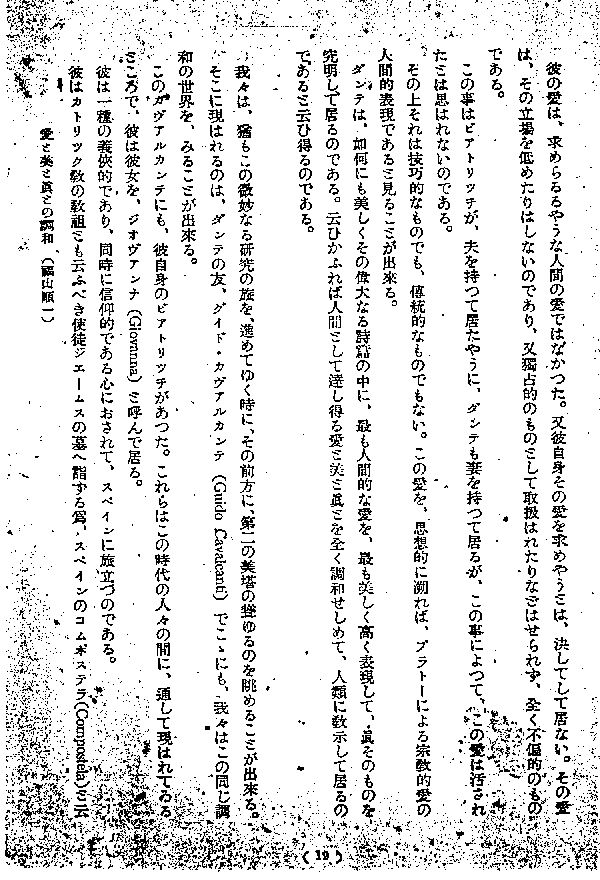 彼の愛は、求めらるゝやうな人間の愛ではなかつた。又彼自身その愛を求めやうとは、決してして居ない。その愛
は、その立場を低めたりはしないのであり、又獨占的のものとして取扱はれたりなどはせられず、全く不偏的のもの
である。
この事はビアトリツチが、夫を持つて居たやうに、ダンテも妻を持つて居るが、この事によつて、この愛は汚され
たとは思はれないのである。
その上それは技巧的なものでも、傳統的なものでもない。この愛を、思想的に溯れば、プラトーによる宗教的愛の
人間的表現であると見ることが出來る。
ダンテは、如何にも美しくその偉大なる詩篇の中に、最も人間的な愛を、最も美しく高く表現して、眞そのものを
究明して居るのである。云ひかふれば人間として達し得る愛と美と眞とを全く調和せしめて、人類に敎示して居るの
であると云ひ得るのである。
我々は、猶もこの微妙なる研究の旅を、進めてゆく時に、その前方に、第二の美塔の聳ゆるのを眺めることが出來る。
そこに現はれるのは、ダンテの友、グイド・カヴアルカンテ (Guido Cavalcanti) でこゝにも、我々はこの同じ調
和の世界を、みることが出來る。
このカヴアルカンテにも、彼自身のビアトリツチがあつた。これらはこの時代の人々の間に、通して現はれてゐる
ところで、彼は彼女を、ジオヴアンナ (Giovrinna) と呼んで居る。
彼は一種の義俠的であり、同時に信仰的である心におされて、スペインに旅立つのである。
彼はカトリツク敎の敎祖とも云ふべき使徒ジエームスの墓へ詣ずる爲、スペインのコムポステラ (Compostela) と云
愛と美と眞との調和 (福山順一)
( 19 )